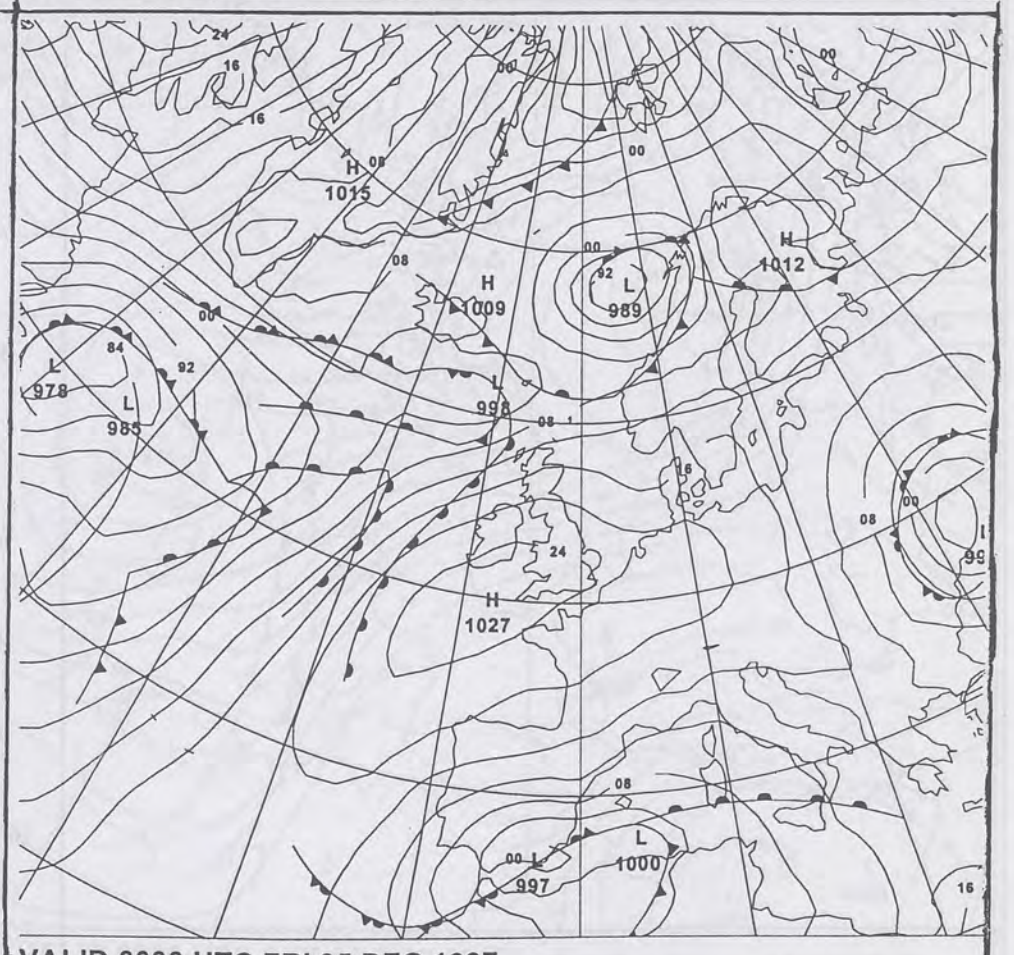 24
16
16
00
00
H 08
1015
00
08
H
1009
00
92
L
989
H
1012
00
84
92
L
978
L
985
L
998
08
16
24
08
00
99
H
1027
08
00 L
997
L
1000
16